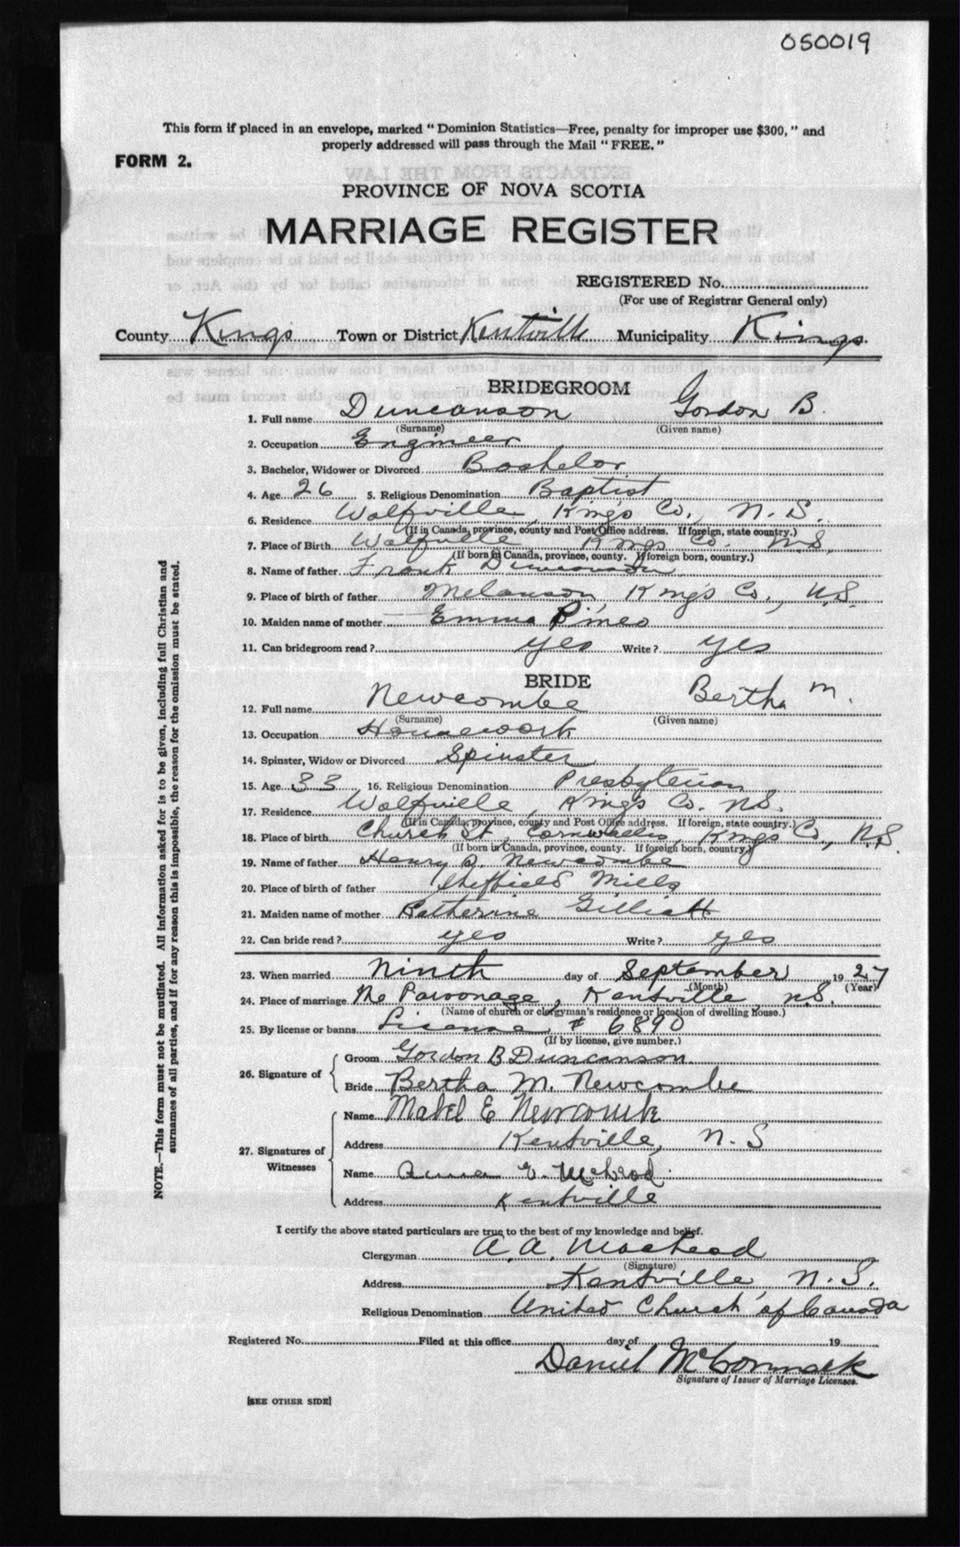 050019
This form if placed in an envelope, marked "Dominion Statistics—Free, penalty for improper use $300," and
properly addressed will pass through the Mail "FREE."
FORM 2.
PROVINCE OF NOVA SCOTIA
MARRIAGE REGISTER
REGISTERED No.
(For use of Registrar General only)
County Kings Town or District Kentville Municipality Kings.
BRIDEGROOM
1. Full name Duncanson Gordon B.
(Surname) (Given name)
2. Occupation Engineer
3. Bachelor, Widower or Divorced Bachelor
4. Age 26 5. Religious Denomination Baptist
6. Residence Wolfville, Kings Co., N.S.
(If in Canada, province, county and Post Office address. If foreign, state country.)
7. Place of Birth Wolfville Kings Co. N.S.
(If born in Canada, province, county. If foreign born, country.)
8. Name of father Frank Duncanson
9. Place of birth of father Melanson Kings Co., N.S.
10. Maiden name of mother Emma Pineo
11. Can bridegroom read? yes Write? yes
BRIDE
12. Full name Newcombe Bertha M.
(Surname) (Given name)
13. Occupation Housework
14. Spinster, Widow or Divorced Spinster
15. Age 33 16. Religious Denomination Presbyterian
17. Residence Wolfville, Kings Co. N.S.
(If in Canada, province, county and Post Office address. If foreign, state country.)
18. Place of birth Church St, Cornwallis, Kings Co., N.S.
(If born in Canada, province, county. If foreign born, country.)
19. Name of father Henry Newcombe
20. Place of birth of father Sheffield Mills
21. Maiden name of mother Katherine Gilliatt
22. Can bride read? yes Write? yes
23. When married Ninth day of September 1927
(Month) (Year)
24. Place of marriage The Parsonage, Kentville, N.S.
(Name of church or clergyman's residence or location of dwelling house.)
25. By license or banns License # 6890
(If by license, give number.)
26. Signature of Groom Gordon B Duncanson
Bride Bertha M. Newcombe
27. Signatures of Witnesses Name Mabel E Newcombe
Address Kentville, N.S
Name E. McLeod
Address Kentville
I certify the above stated particulars are true to the best of my knowledge and belief.
Clergyman A. A. MacLeod
(Signature)
Address Kentville N.S.
Religious Denomination United Church of Canada
Registered No. Filed at this office day of 19
Daniel McCormack
Signature of Issuer of Marriage Licenses.
[SEE OTHER SIDE]
NOTE.—This form must not be mutilated. All information asked for is to be given, including full Christian and
surnames of all parties, and if for any reason this is impossible, the reason for the omission must be stated.